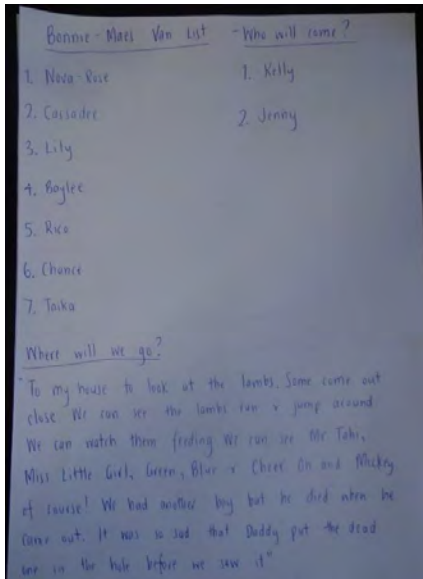 Bonnie-Maes Van List
- Who will come?
1. Nova-Rose
1. Kelly
2. Cassadee
2. Jenny
3. Lily
4. Baylee
5. Rico
6. Chance
7. Taika
Where will we go?
"To my house to look at the lambs. Some come out
close We can see the lambs run & jump around
We can watch them feeding We can see Mr Tobi,
Miss Little Girl, Green, Blue & Cheer On and Mickey
of course! We had another boy but he died when he
came out. It was so sad that Daddy put the dead
one in the hole before we saw it"